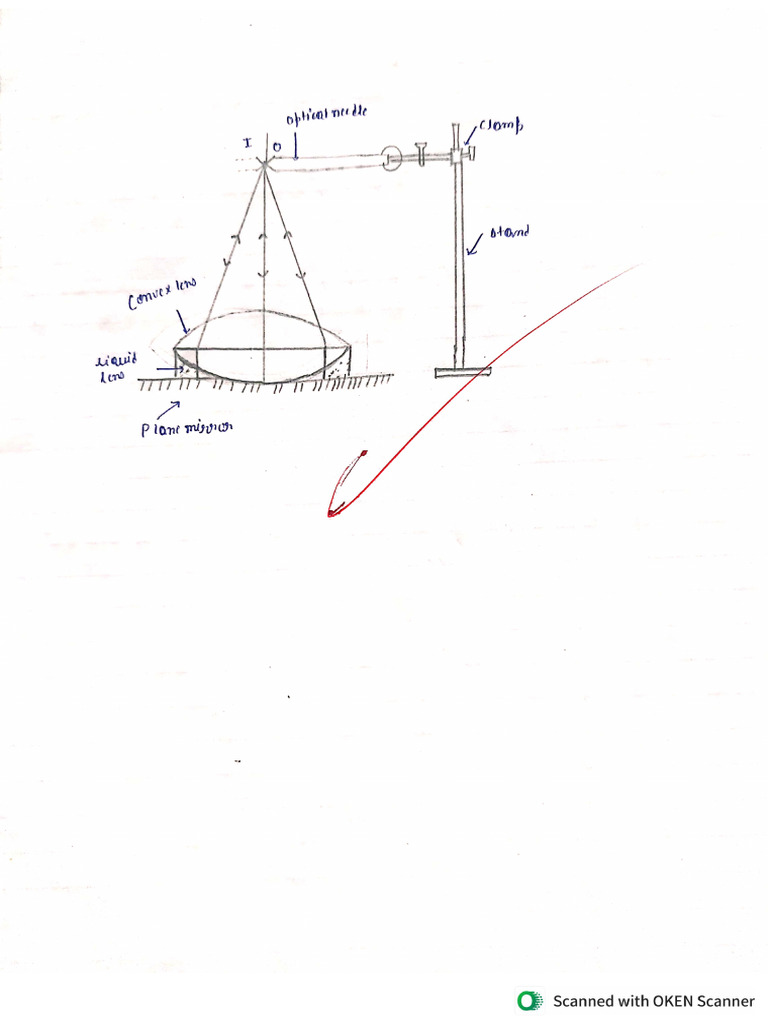 optical needle
I
O
clamp
stand
Convex lens
Liquid
lens
Plane mirror
Scanned with OKEN Scanner